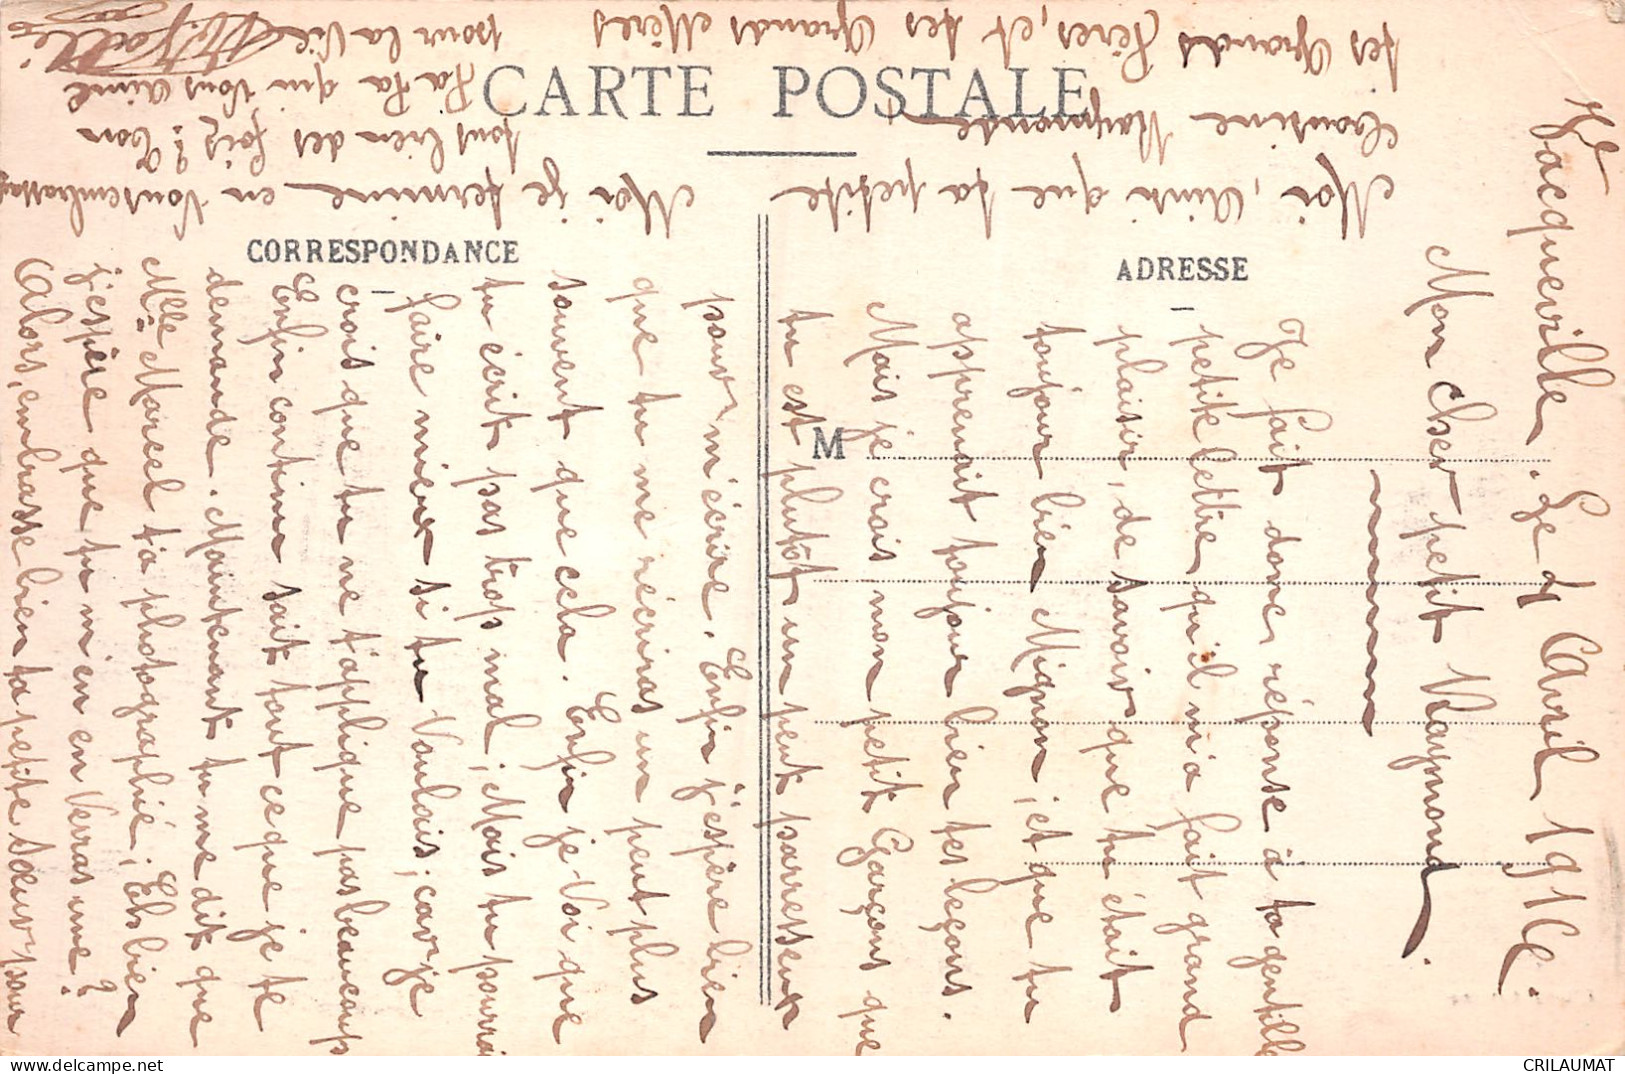 CARTE POSTALE
CORRESPONDANCE
ADRESSE
M
Jacqueville. Le 4 Avril 1916.
Mon cher petit Raymond.
Je fait donc réponse à ta gentille
petite lettre qu'il m'a fait grand
plaisir, de savoir que tu était
toujour bien Mignon, et que tu
apprenait toujour bien tes leçons.
Mais je crois mon petit Garçons que
tu est plutôt un peut parresseux
pour m'écrire. Enfin j'espère bien
que tu me récriras un peut plus
souvent que cela. Enfin je Voi que
tu écrit pas trops mal, Mais tu pourrai
faire mieux si tu Voulais, car je
crois que tu ne t'applique pas beaucoup
Enfin continu sait tout ce que je te
demande. Maintenant tu me dit que
Mlle Marcel t'a photographié, Eh bien
j'espère que tu m'en en Verras une?
Alors, embrasse bien ta petite Sœur pour
Moi, Ainsi que ta petite
Cousine Raymonde
tes Grands Pères, et tes Grands Mères
Moi je termine en Vous embrassant
tous bien des fois? Ton
Pa Pa qui Vous aime
pour la Vie
CRILAUMAT